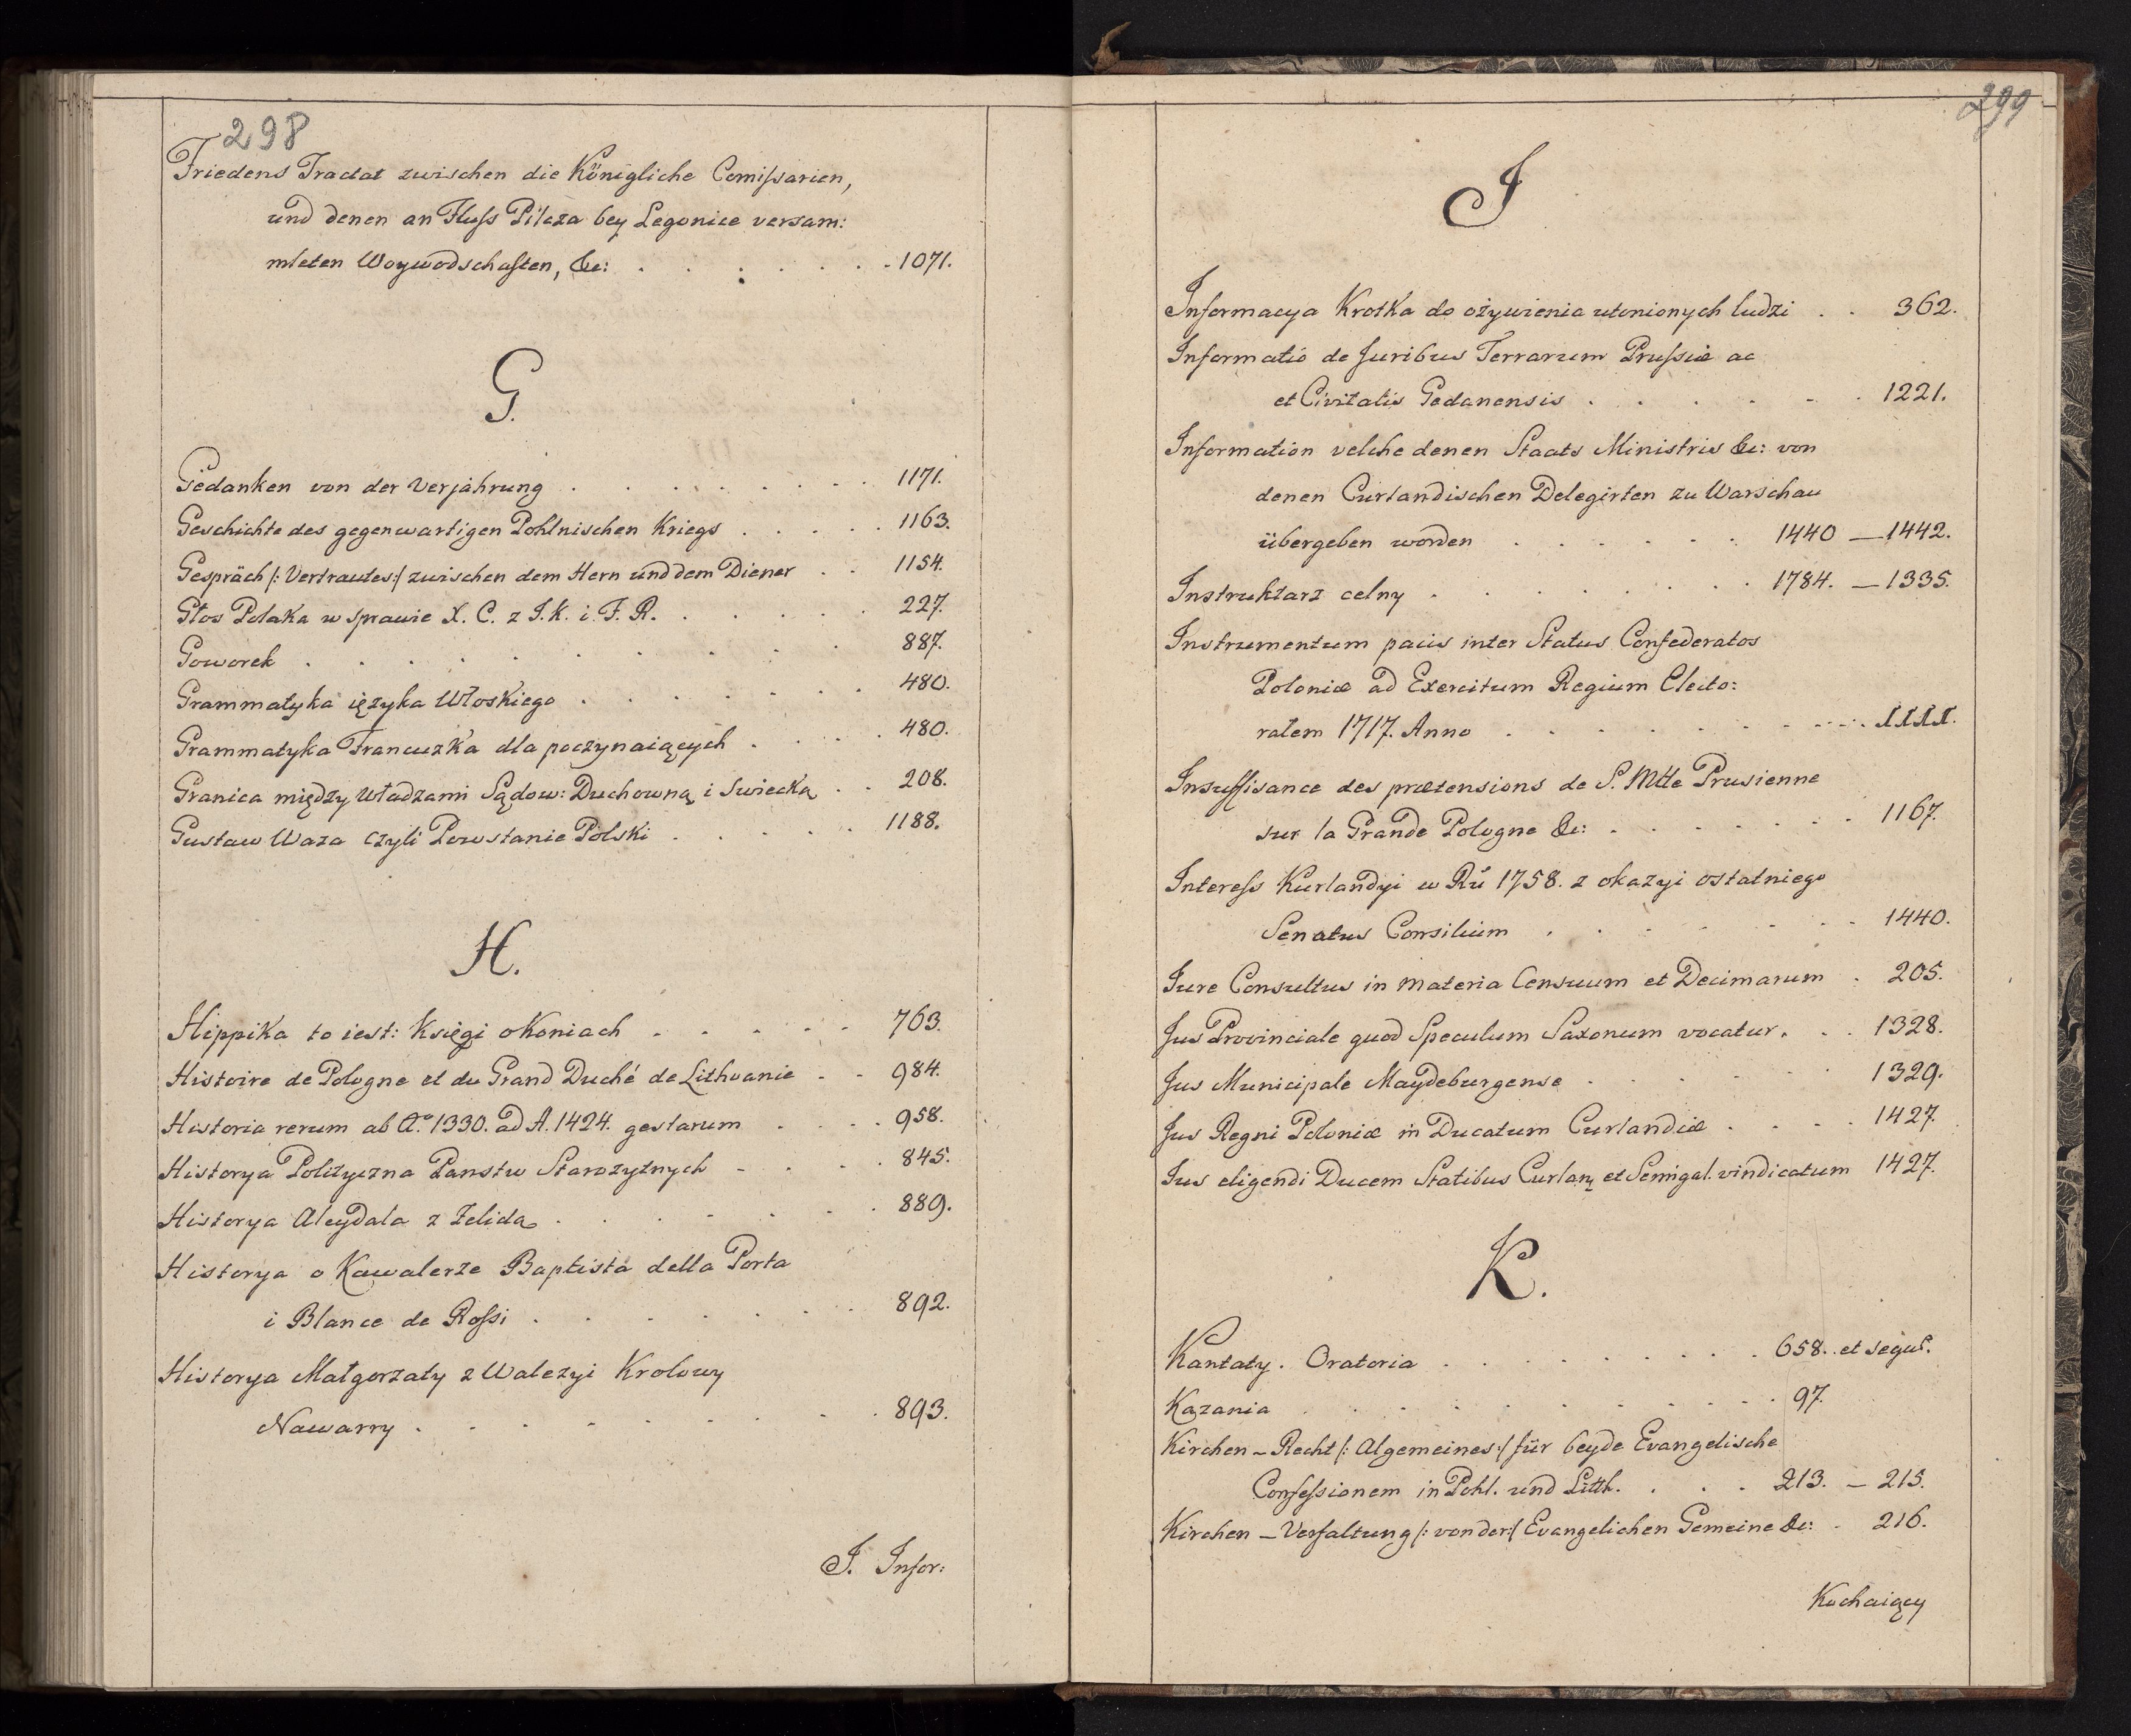 298
Friedens Tractat zwischen die Königliche Comissarien,
und denen an Fluss Pilcza bey Legonice versam:
mleten Woywodschaften, &c: . . . . . . 1071.
G.
Gedanken von der Verjährung . . . . . . 1171.
Geschichte des gegenwartigen Pohlnischen Kriegs . . . . 1163.
Gespräch /: Vertrautes :/ zwischen dem Hern und dem Diener . . 1154.
Głos Polaka w sprawie X. C. z J. K. i F. R. . . . . 227.
Goworek . . . . . . . . . . 887.
Grammatyka ięzyka Włoskiego . . . . . . 480.
Grammatyka Francuzka dla poczynaiących . . . . 480.
Granica między władzami Sądow: Duchowną i Swiecką . . 208.
Gustaw Waza czyli Powstanie Polski . . . . . 1188.
H.
Hippika to iest: Księgi o Koniach . . . . . 763.
Histoire de Pologne et du Grand Duché de Lithvanie . . 984.
Historia rerum ab Aº. 1330. ad A. 1424. gestarum . . . 958.
Historya Polityczna Panstw Starozytnych . . . . 845.
Historya Aleydala z Zelidą . . . . . . . 889.
Historya o Kawalerze Baptista della Porta
i Blance de Rossi . . . . . . . 892.
Historya Małgorzaty z Walezyi Krolowy
Nawarry . . . . . . . . . 893.
J. Infor:
299
J
Informacya Krotka do ożywienia utonionych ludzi . . 362.
Informatio de Juribus Terrarum Prussiæ ac
et Civitatis Gedanensis . . . . . . 1221.
Information velche denen Staats Ministris &c: von
denen Curlandischen Delegirten zu Warschau
übergeben worden . . . . . 1440 — 1442.
Instruktarz celny . . . . . . . 1784. — 1335.
Instrumentum pacis inter Status Confederatos
Poloniæ ad Exercitum Regium Electo:
ratem 1717. Anno . . . . . . . . XXXX.
Insuffisance des prætensions de S. Mtte Prusienne
sur la Grande Pologne &c: . . . . . . 1167.
Interess Kurlandyi w Rů 1758. z okazyi ostatniego
Senatus Consilium . . . . . . 1440.
Jure Consultus in materia Censuum et Decimarum . 205.
Jus Provinciale quod Speculum Saxonum vocatur . . . 1328.
Jus Municipale Maydeburgense . . . . . 1329.
Jus Regni Poloniæ in Ducatum Curlandiæ . . . . 1427.
Jus eligendi Ducem Statibus Curlan: et Semigal. vindicatum 1427.
K.
Kantaty. Oratoria . . . . . . . 658. et sequ.
Kazania . . . . . . . . . . 97.
Kirchen - Recht /: Algemeines :/ für beyde Evangelische
Confessionem in Pohl. und Litth. . . . 213. — 215.
Kirchen - Verfaltung /: von der :/ Evangelichen Gemeine &c: . 216.
Kochaiący